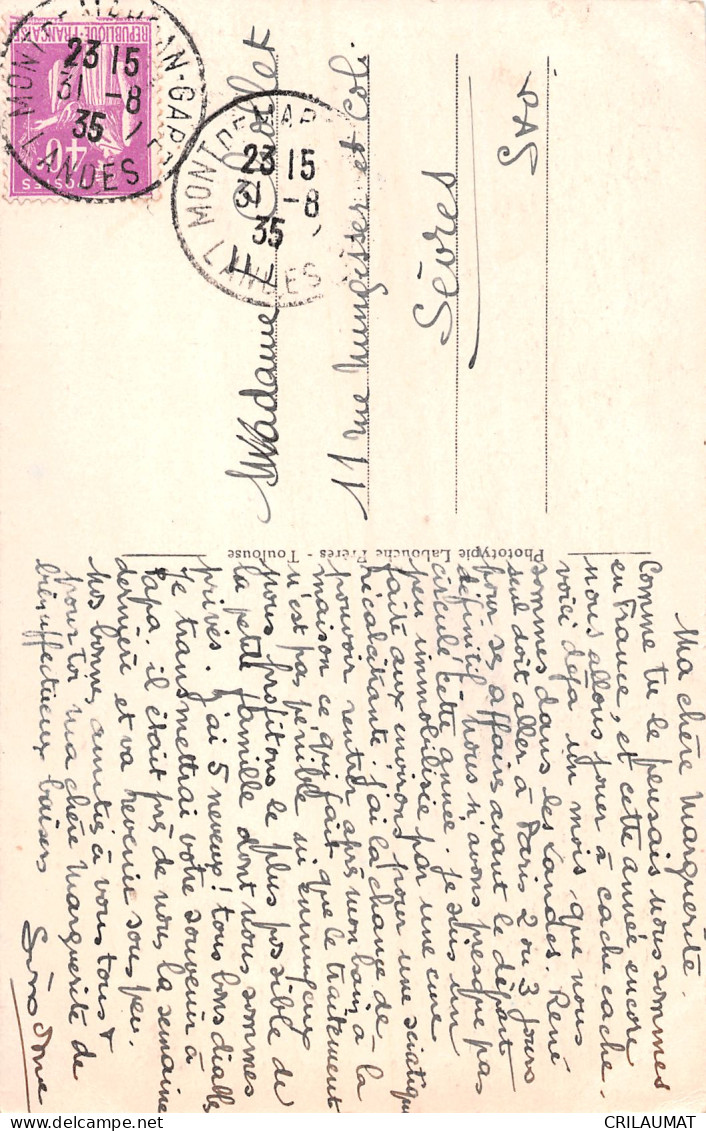 Ma chère Marguerite.
Comme tu le pensais nous sommes
en France, et cette année encore
nous allons jouer à cache cache.
voici déjà un mois que nous
sommes dans les Landes. René
seul doit aller à Paris 2 ou 3 jours
pour ses affaires avant le départ
définitif. Nous n'avons presque pas
circulé cette année. Je suis un
peu immobilisée par une cure
faite aux environs pour une sciatique
récalcitrante. j'ai la chance de
pouvoir rentrer après mon bain à la
maison ce qui fait que le traitement
n'est pas pénible ni ennuyeux
nous profitons le plus possible de
la petite famille dont nous sommes
privés. J'ai 5 neveux! tous bons diables
Je transmettrai votre souvenir à
Papa. il était près de nous la semaine
dernière et va revenir sous peu.
Nos bonnes amitiés à vous tous &
pour toi ma chère Marguerite de
bien affectueux baisers
Phototypie Labouche Frères - Toulouse
Madame
11 rue et Col.
Sèvres
S & O
RÉPUBLIQUE FRANÇAISE
40
POSTES
23 15
31 -8
35
LANDES
MONT-DE-MAR
23 15
31 -8
35
LANDES
CRILAUMAT